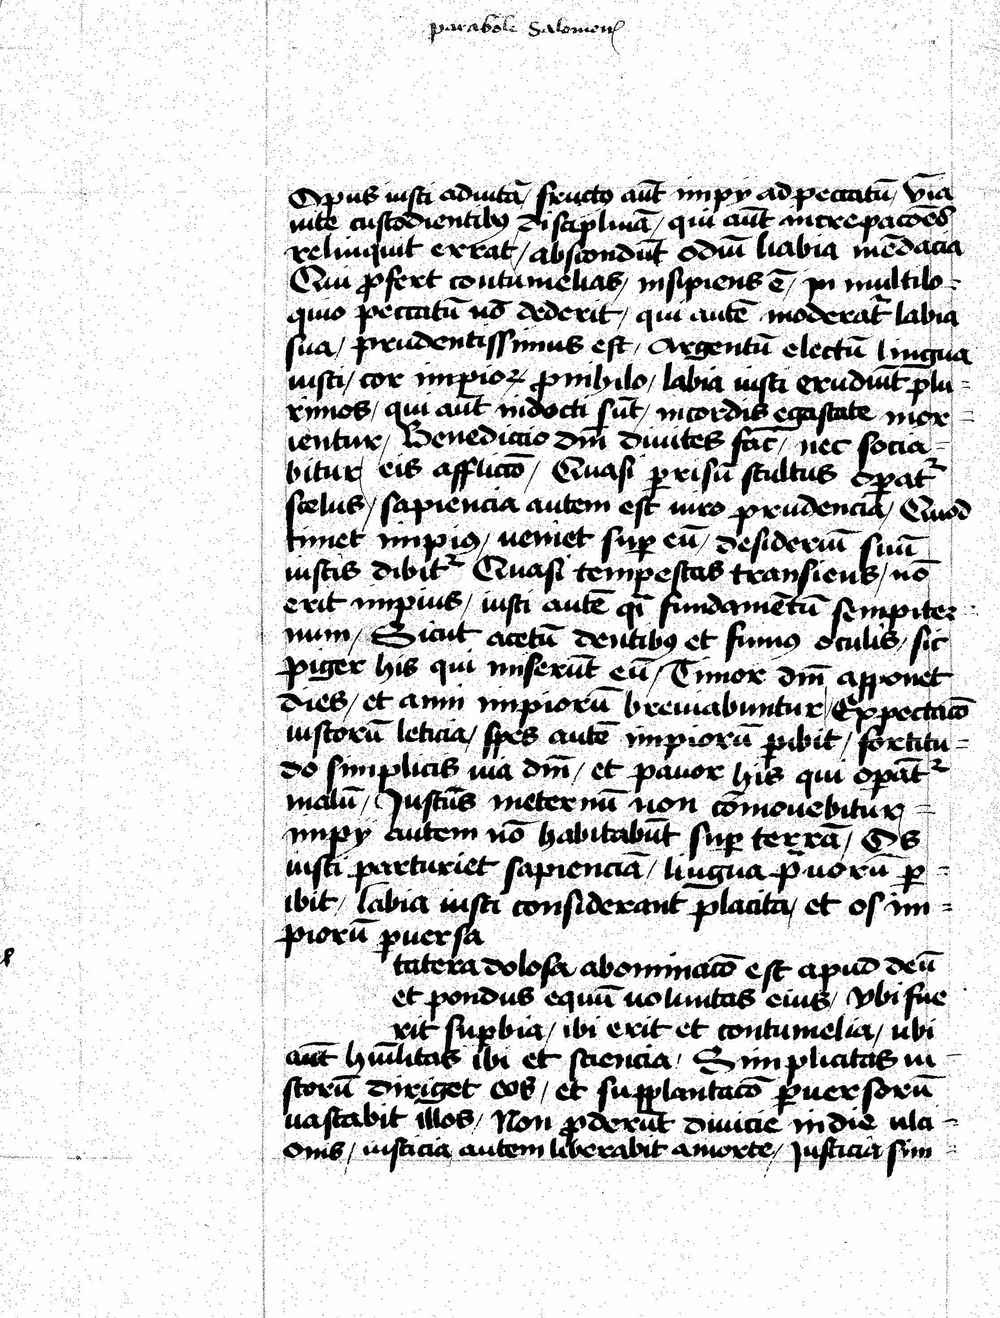 parabole Salomonis
Opus iusti ad uitā / fructꝰ aūt impij ad peccatū / via
uite custodientibꝫ disciplinā / qui aūt increpacōes
relinquit errat / abscondūt odiū liabia mēdacia
Qui ꝓfert contumelias / insipiens ē / In multilo-
quio peccatū nō deerit / qui autē moderat᷑ labia
sua / prudentissimus est / Argentū electū lingua
iusti / cor impioꝝ ꝓ nihilo / labia iusti erudiūt plu-
rimos / qui aūt indocti sūt / in cordis egestate mor-
ientur / Benedictio dn̄i diuites fac̄ / nec socia-
bitur eis afflictō / Quasi ꝑ risū stultus oꝑat᷑
scelus / sapiencia autem est uiro prudencia / Quod
timet impiꝰ / ueniet suꝑ eū / desideriū suū
iustis dabit᷑ Quasi tempestas transiens / nō
erit impius / iusti autē qͥ fundamētū sempiter-
num / Sicut acetū dentibꝫ et fumꝰ oculis / sic
piger his qui miserūt eū / Timor dn̄i apponet
dies / et anni impiorū breuiabuntur / Expectacō
iustorū leticia / spes autē impiorū ꝑibit / fortitu-
do simplicis uia dn̄i / et pauor his qui oꝑāt᷑
malū / Justus in eternū non cōmouebitur -
impij autem nō habitabūt suꝑ terrā / Os
iusti parturiet sapienciā / lingua prauorū ꝑ-
ibit / Labia iusti considerant placita / et os im-
piorū ꝑuersa
tatera dolosa abominacō est apud deū
et pondus equū uoluntas eius / Vbi fue
rit suꝑbia / ibi erit et contumelia / ubi
aūt hūilitas ibi et sciencia / Simplicitas iu-
storū diriget eos / et supplantacō ꝑuersorū
uastabit illos / Non ꝓderūt diuicie in die ulci-
onis / iusticia autem liberabit a morte / Justicia sim-